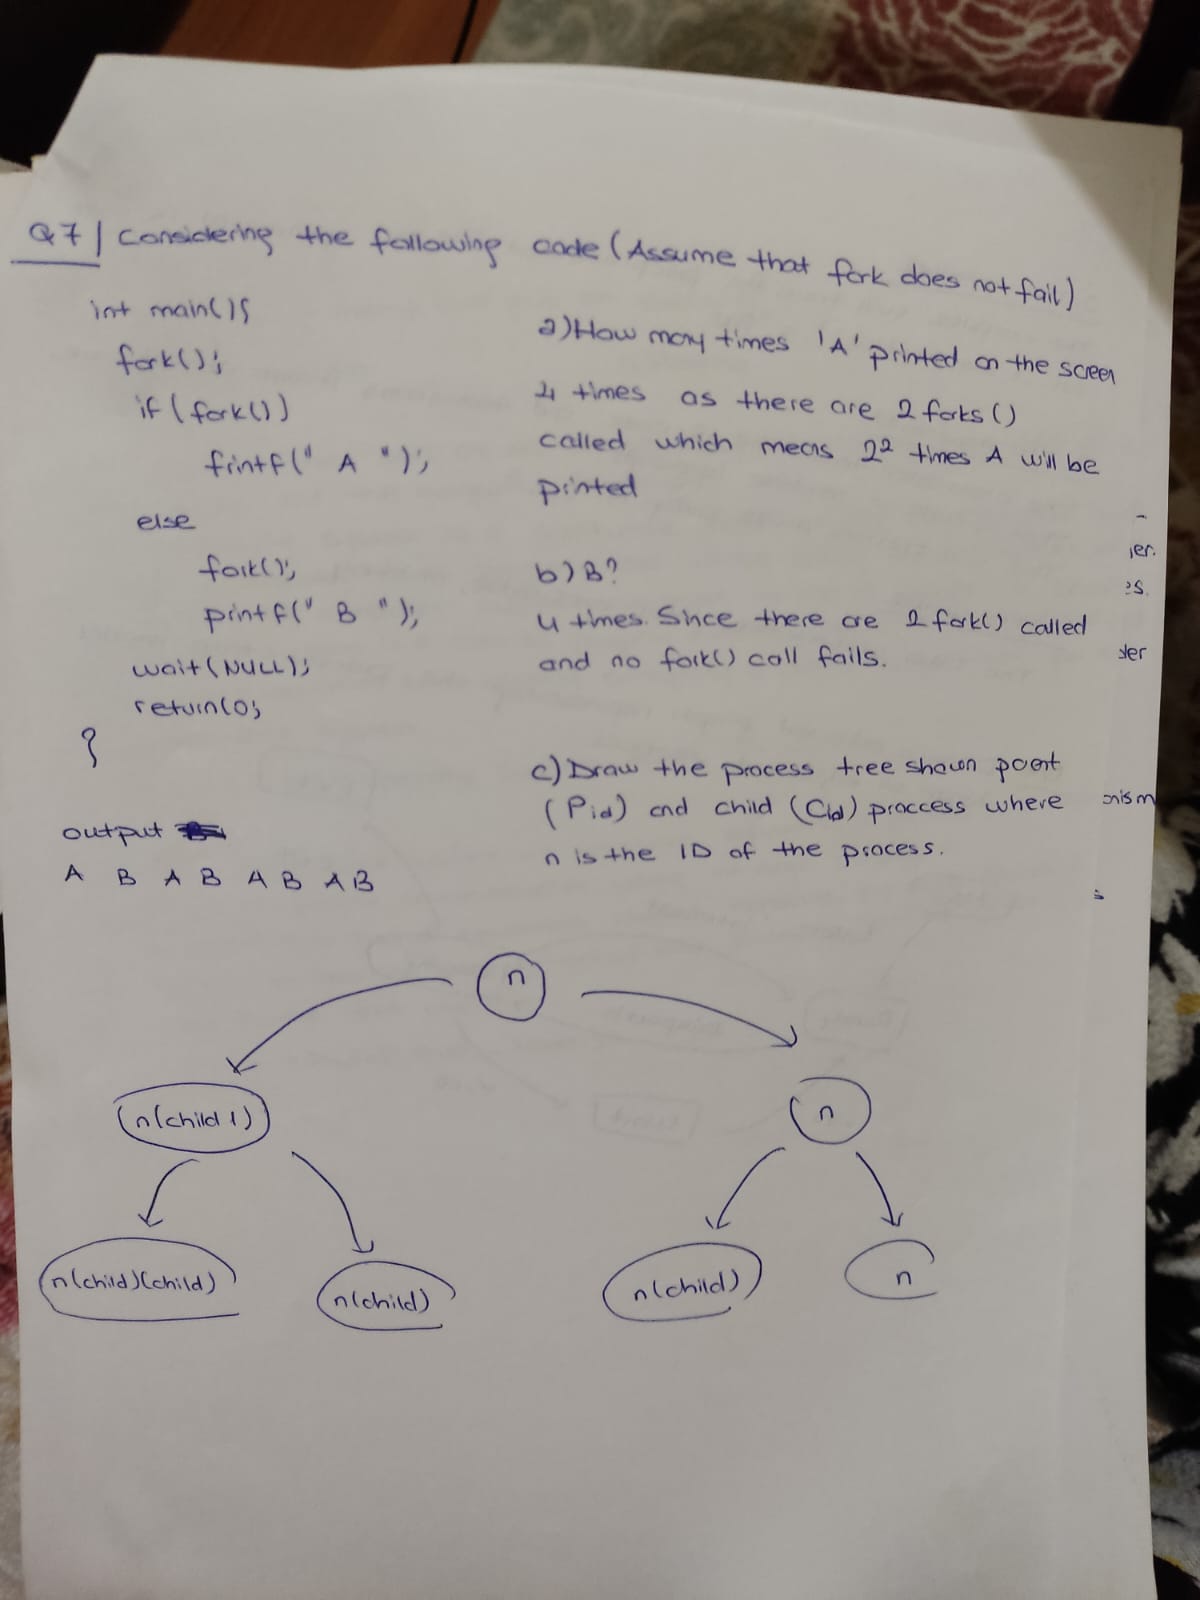 Q7 | Considering the following code (Assume that fork does not fail)
int main(){
fork();
if (fork())
frintf(" A ");
else
fork();
printf(" B ");
wait(NULL);
return(0;
}
output
A B A B A B A B
a) How many times 'A' printed on the screen
4 times as there are 2 forks()
called which means 2² times A will be
printed
b) B?
4 times. Since there are 2 fork() called
and no fork() call fails.
c) Draw the process tree shown parent
(Pid) and child (Cid) proccess where
n is the ID of the process.
n
n(child 1)
n
n(child)(child)
n(child)
n(child)
n